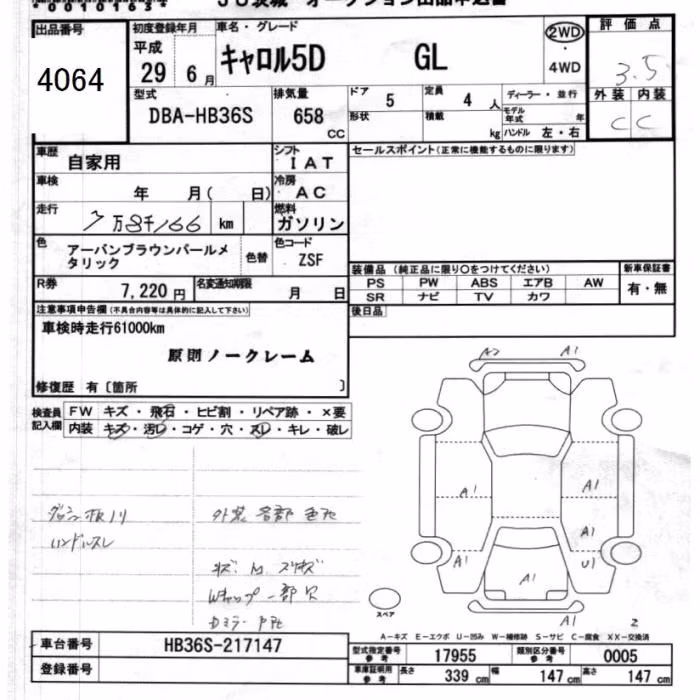 00101634
JU茨城 オークション出品申込書
出品番号
4064
初度登録年月
平成
29 6 月
車名・グレード
キャロル5D GL
2WD
・
4WD
評価点
3.5
型式
DBA-HB36S
排気量
658 CC
ドア 5
定員 4 人
形状
積載 kg
ディーラー・並行
モデル年式 年
ハンドル 左・右
外装 内装
C C
車歴
自家用
シフト
IAT
セールスポイント(正常に機能するものに限ります)
車検
年 月( 日)
冷房
AC
走行
7万8千166 km
燃料
ガソリン
色
アーバンブラウンパールメ
タリック
色替
色コード
ZSF
装備品 (純正品に限り○をつけてください)
新車保証書
PS PW ABS エアB AW
SR ナビ TV カワ
有・無
R券
7,220 円
名変通知期限
月 日
後日品
注意事項申告欄(不具合内容等は具体的に記入して下さい)
車検時走行61000km
原則ノークレーム
修復歴 有〔箇所 〕
検査員
記入欄
FW キズ・飛石・ヒビ割・リペア跡・×要
内装 キズ・汚レ・コゲ・穴・スレ・キレ・破レ
ハンドルスレ
外装 各部 色
キズ M スリキズ
Wキャップ 一部欠
A2 A1
A1 A1
A1
A1 U1
A1
A1
2
スペア
A-キズ E-エクボ U-凹み W-補修跡 S-サビ C-腐食 XX-交換済
車台番号
HB36S-217147
登録番号
型式指定番号
参考
17955
類別区分番号
参考
0005
車庫証明用
参考
長さ 339 cm
幅 147 cm
高さ 147 cm